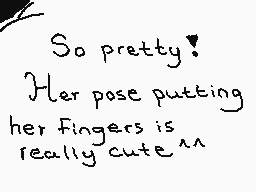 So pretty!
Her pose putting
her fingers is
really cute ^^